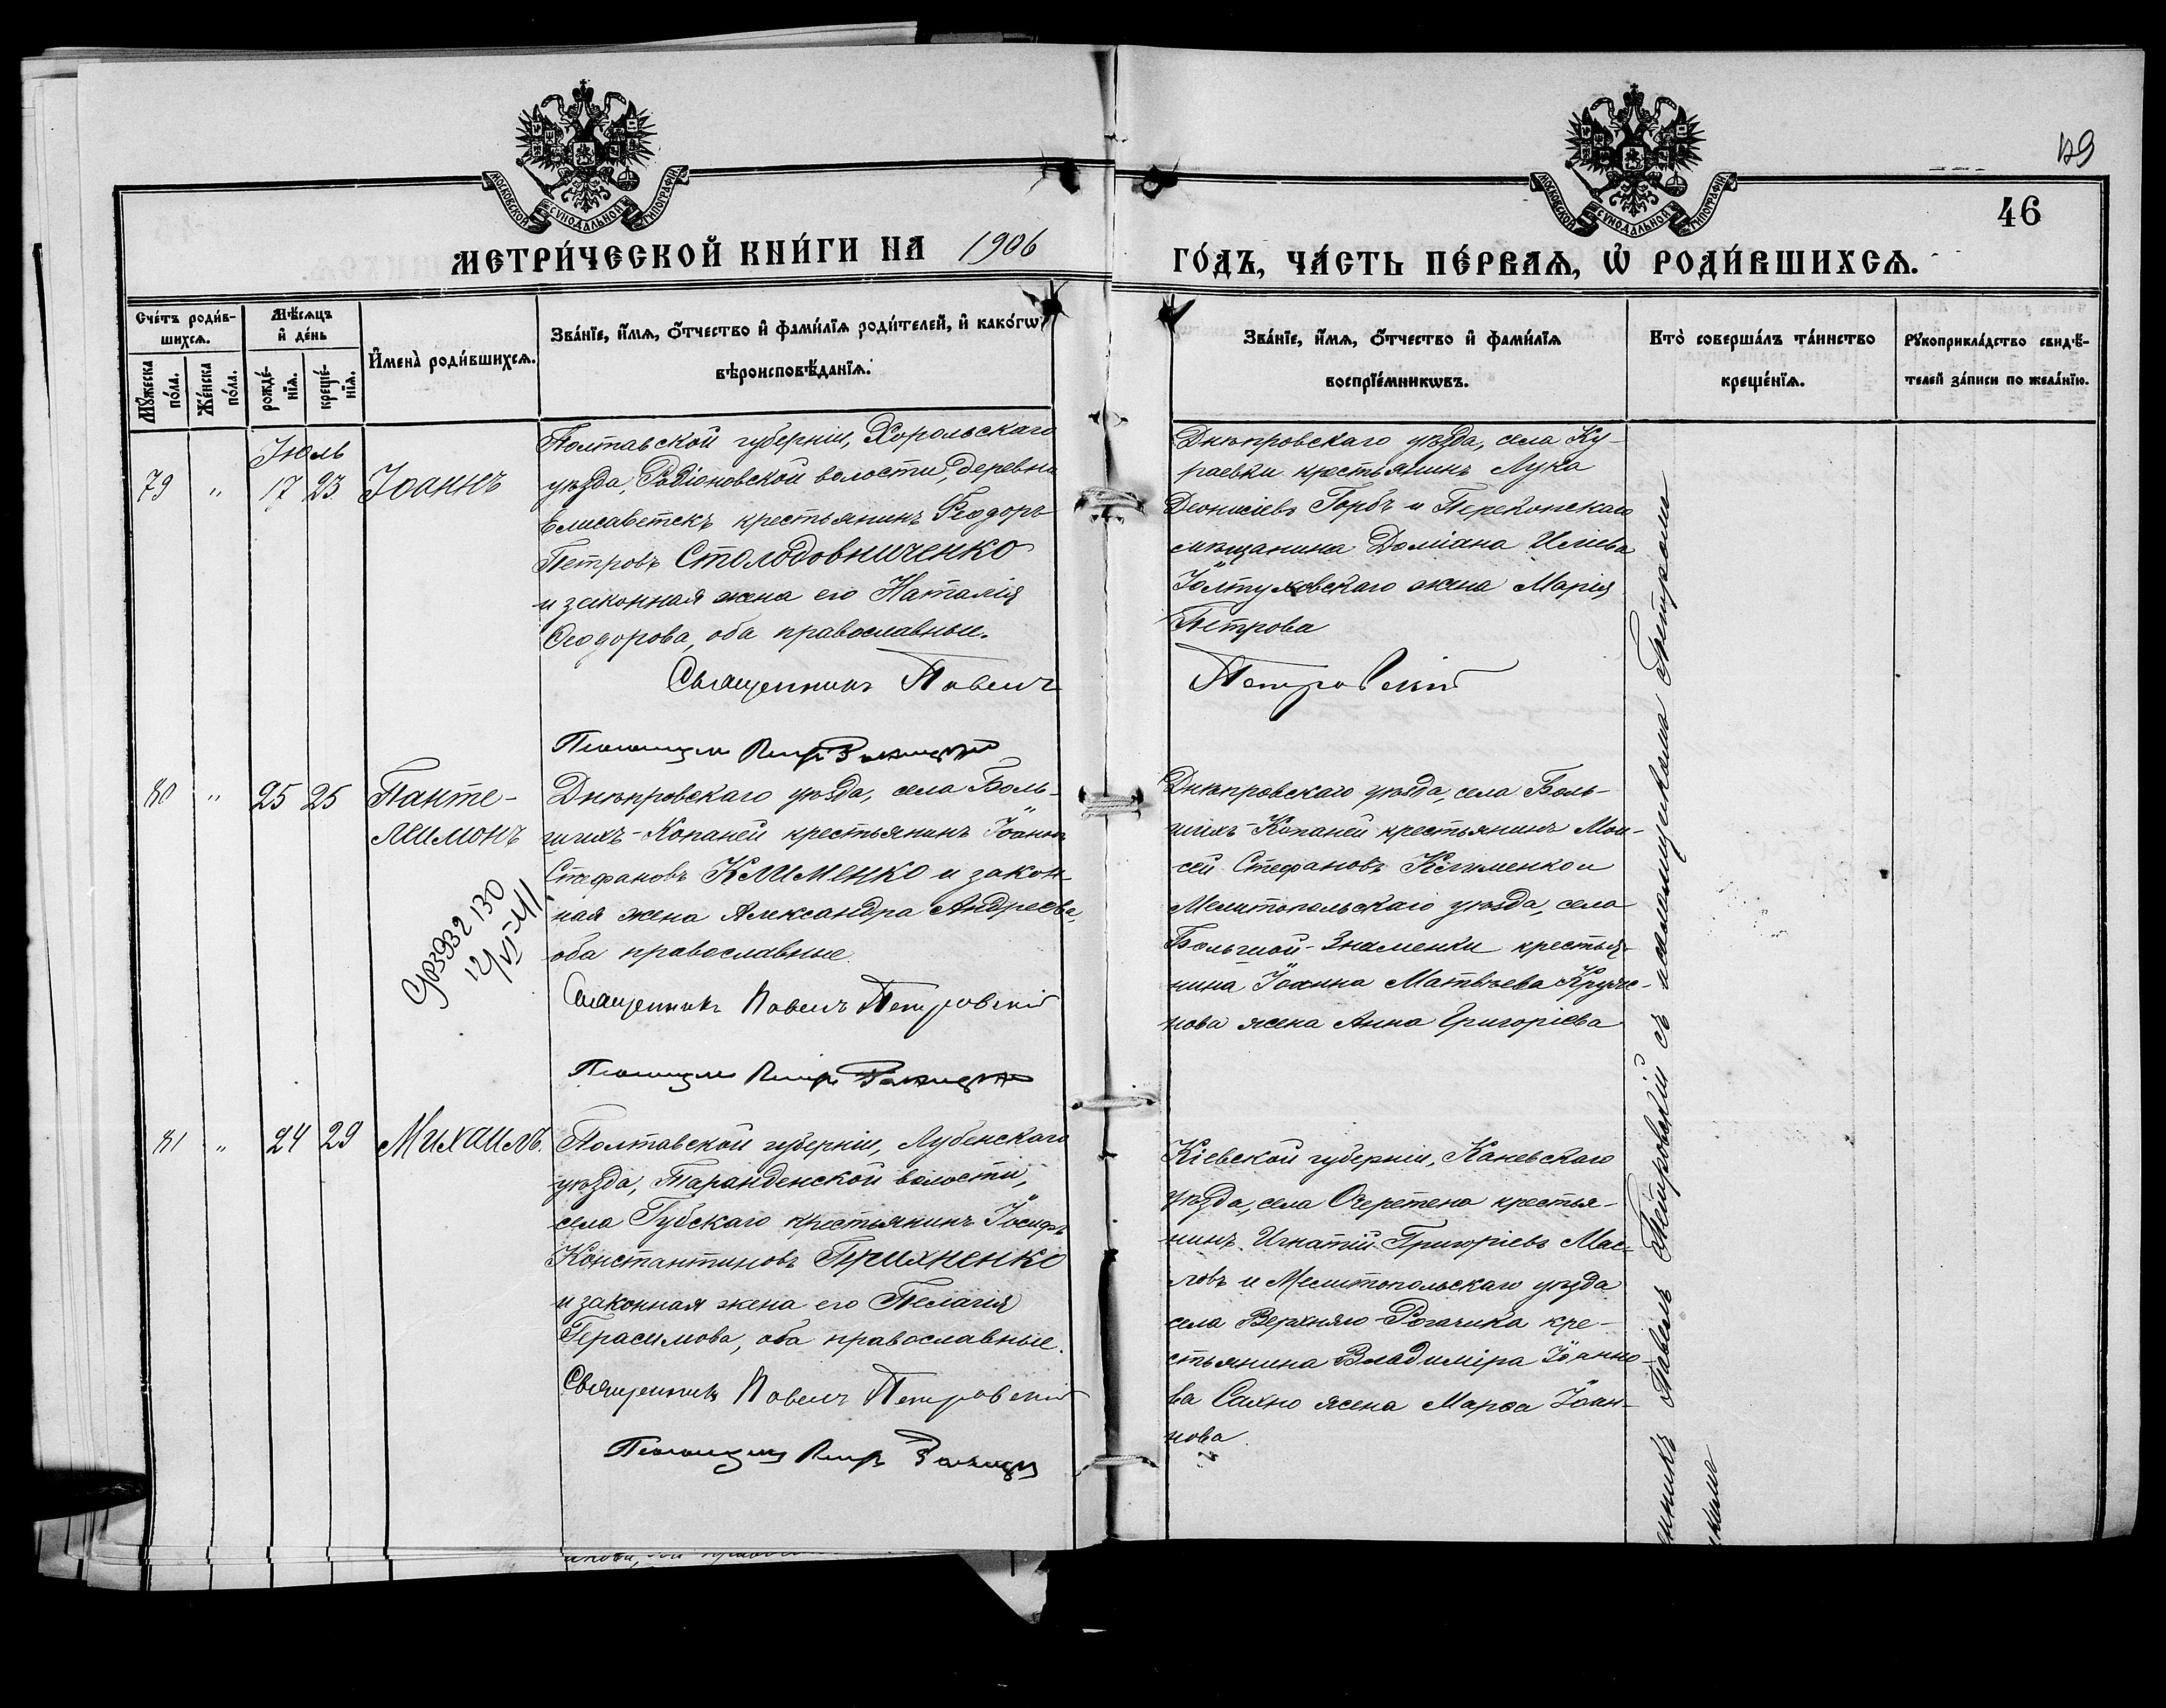 МОСКОВСКОЙ СѴНОДАЛЬНОЙ ТИПОГРАФІИ
МОСКОВСКОЙ СѴНОДАЛЬНОЙ ТИПОГРАФІИ
46
МЕТРИ́ЧЕСКОЙ КНИ́ГИ НА 1906
ГО́ДЪ, ЧА́СТЬ ПЕ́РВАѦ, Ѡ РОДИ́ВШИХСѦ.
Сче́тъ роди́в-
шихсѧ.
Мꙋжеска по́ла.
Же́нска по́ла.
Мѣ́сѧцъ
и де́нь
рожде́-
нїѧ.
креще́-
нїѧ.
Имена̀ роди́вшихсѧ.
Зва́нїе, и́мѧ, ѻ́тчество и фами́лїѧ роди́телей, и како́гѡ
вѣроисповѣ́данїѧ.
Зва́нїе, и́мѧ, ѻ́тчество и фами́лїѧ
воспрїе́мникѡвъ.
Кто̀ соверша́лъ та́инство
креще́нїѧ.
Рꙋкоприкла́дство свидѣ́-
телей за́писи по жела́нїю.
Іюль
79 " 17 23 Іоаннъ
Полтавской губерніи, Хорольскаго
уѣзда, Родіоновской волости, деревни
Елисаветскъ крестьянинъ Ѳеодоръ
Петровъ Столодовниченко
и законная жена его Наталія
Ѳеодорова, оба православные.
Священникъ Павелъ
Петровскій
Псаломщикъ
Днѣпровскаго уѣзда, села Ку-
раевки крестьянинъ Лука
Деонисіевъ Горбъ и Перекопскаго
мѣщанина Доміана Иліева
Іолтуховскаго жена Марія
Петрова
80 " 25 25 Панте-
лимонъ
Днѣпровскаго уѣзда, села Боль-
шихъ-Копаней крестьянинъ Іоаннъ
Стефановъ Клименко и закон-
ная жена Александра Андреева,
оба православные.
Священникъ Павелъ Петровскій
Псаломщикъ
Днѣпровскаго уѣзда, села Боль-
шихъ-Копаней крестьянинъ Мои-
сей Стефановъ Клименко и
Мелитопольскаго уѣзда, села
Большой-Знаменки крестья-
нина Іоанна Матвѣева
нова жена Анна Григоріева
81 " 24 29 Михаилъ.
Полтавской губерніи, Лубенскаго
уѣзда, Тарандинской волости,
села Губскаго крестьянинъ Іосифъ
Константиновъ Прихненко
и законная жена его Пелагія
Герасимова, оба православные.
Священникъ Павелъ Петровскій
Псаломщикъ
Кіевской губерніи, Каневскаго
уѣзда, села Очеретено крестья-
нинъ Игнатій Григоріевъ Мас-
ловъ и Мелитопольскаго уѣзда
села Верхняго-Рогачика кре-
стьянина Владиміра Іоанно-
ва Сахно жена Марѳа Іоан-
нова.
Павелъ Петровскій съ псаломщикомъ Петромъ